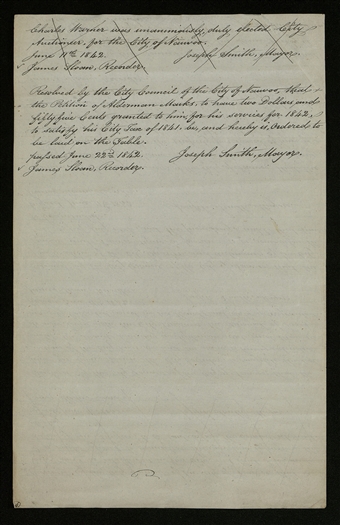 Charles Warner was unanimously, duly elected City
Auctioneer, for the City of Nauvoo.
June 11th 1842. Joseph Smith, Mayor.
James Sloan, Recorder.
Resolved by the City Council of the City of Nauvoo, that
the Petition of Alderman Marks, to have two Dollars and
fifty five Cents granted to him, for his services for 1842,
to satisfy his City Tax of 1841. be, and hereby is, Ordered to
be laid on the Table.
passed June 22d. 1842. Joseph Smith, Mayor.
James Sloan, Recorder.